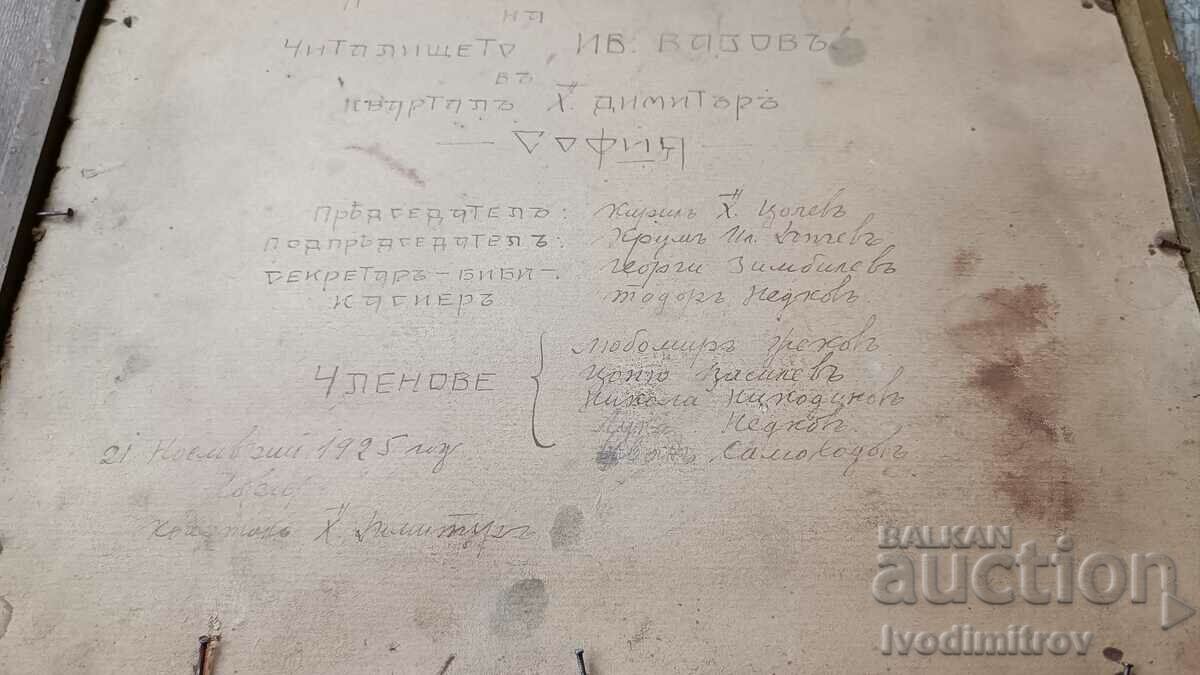 НА
ЧИТАЛИЩЕТО ИВ. ВАЗОВЪ
ВЪ
КВАРТАЛЪ Х. ДИМИТЪРЪ
— СОФИЯ —
ПРѢДСЕДАТЕЛЬ: Кирилъ Х. Цолевъ
ПОДПРѢДСЕДАТЕЛЪ: Крумъ Ил.
СЕКРЕТАРЪ-БИБИ-. Георги Зимбилевъ
КАСИЕРЪ Тодоръ Недковъ
Любомиръ Грековъ
ЧЛЕНОВЕ Цоню Василевъ
Никола Никодимовъ
Недковъ
21 Ноемврий 1925 год. Самоходовъ
Х. Димитъръ
BALKAN
auction
Ivodimitrov